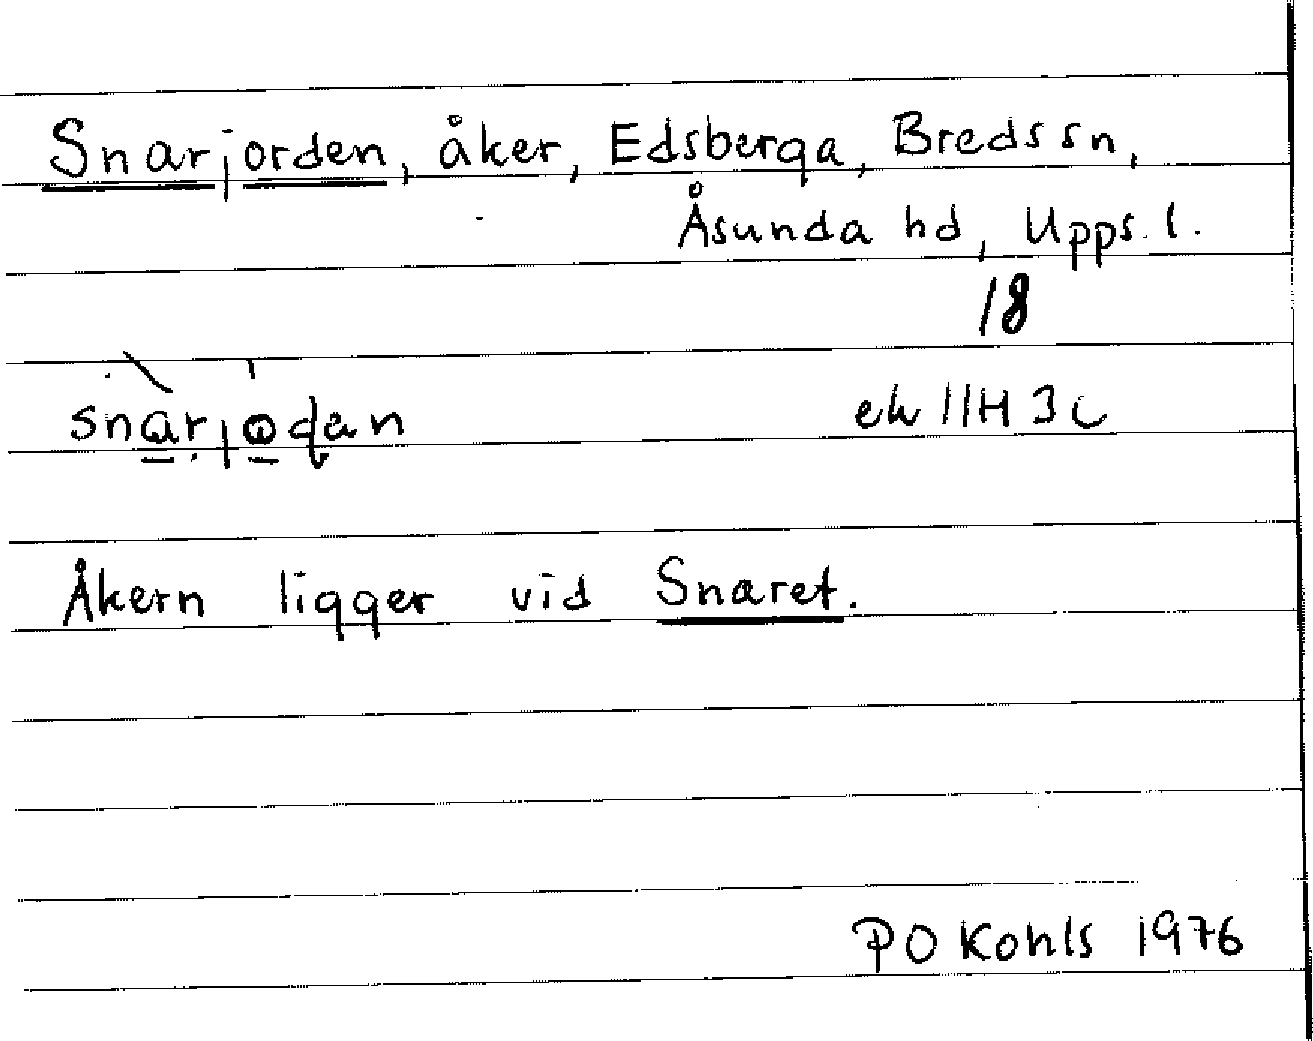 Snarjorden, åker, Edsberga, Breds sn,
Åsunda hd, Upps. l.
18
ek 11H 3c
Åkern ligger vid Snaret.
PO Kohls 1976